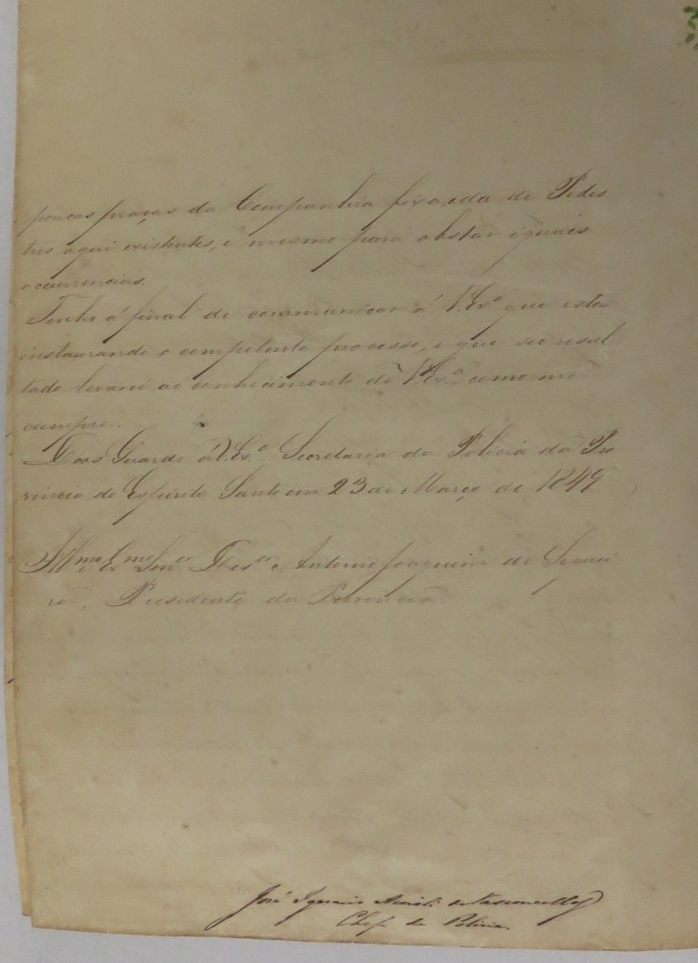 poucas praças da Companhia fixa, e da de Pedes
tres aqui existentes, e mesmo para obstar iguais
occurrencias.
Tenho á final de communicar á V. Exª que estou
instaurando o competente processo, e que seo resul
tado levarei ao conhecimento de V. Exª, como me
cumpre.
Deos Guarde á V. Exª Secretaria da Policia da Pro
vincia do Espirito Santo em 23 de Março de 1849
Illmo. Exmo. Snr. Antonio Joaquim de Siquei
ra, Presidente da Provincia.
José Ignacio Accioli de Vasconcellos
Chefe de Policia